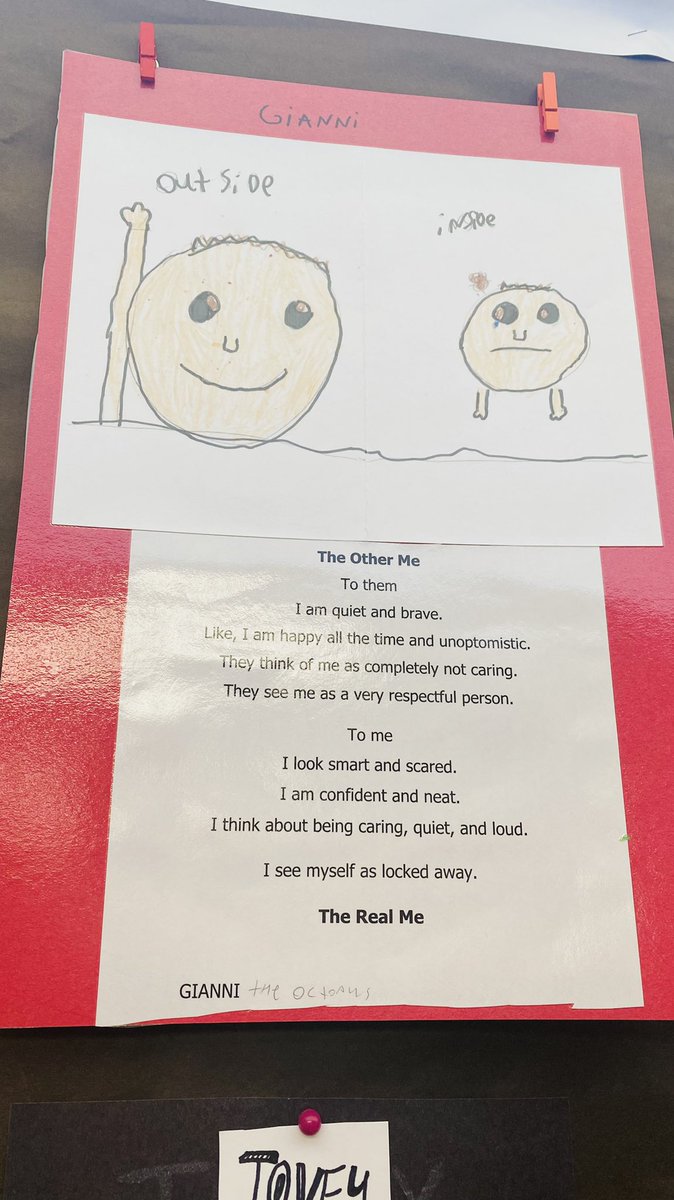 GiANNi
outside
inside
The Other Me
To them
I am quiet and brave.
Like, I am happy all the time and unoptomistic.
They think of me as completely not caring.
They see me as a very respectful person.
To me
I look smart and scared.
I am confident and neat.
I think about being caring, quiet, and loud.
I see myself as locked away.
The Real Me
GIANNI the octopus
TOVEY